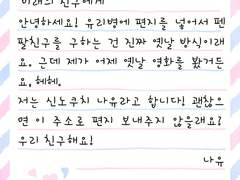 미래의 친구에게
안녕하세요! 유리병에 편지를 넣어서 펜
팔친구를 구하는 건 진짜 옛날 방식이래
요. 근데 제가 어제 옛날 영화를 봤거든
요, 헤헤.
저는 신노쿠치 나유라고 합니다! 괜찮으
면 이 주소로 편지 보내주지 않을래요?
우리 친구해요!
나유